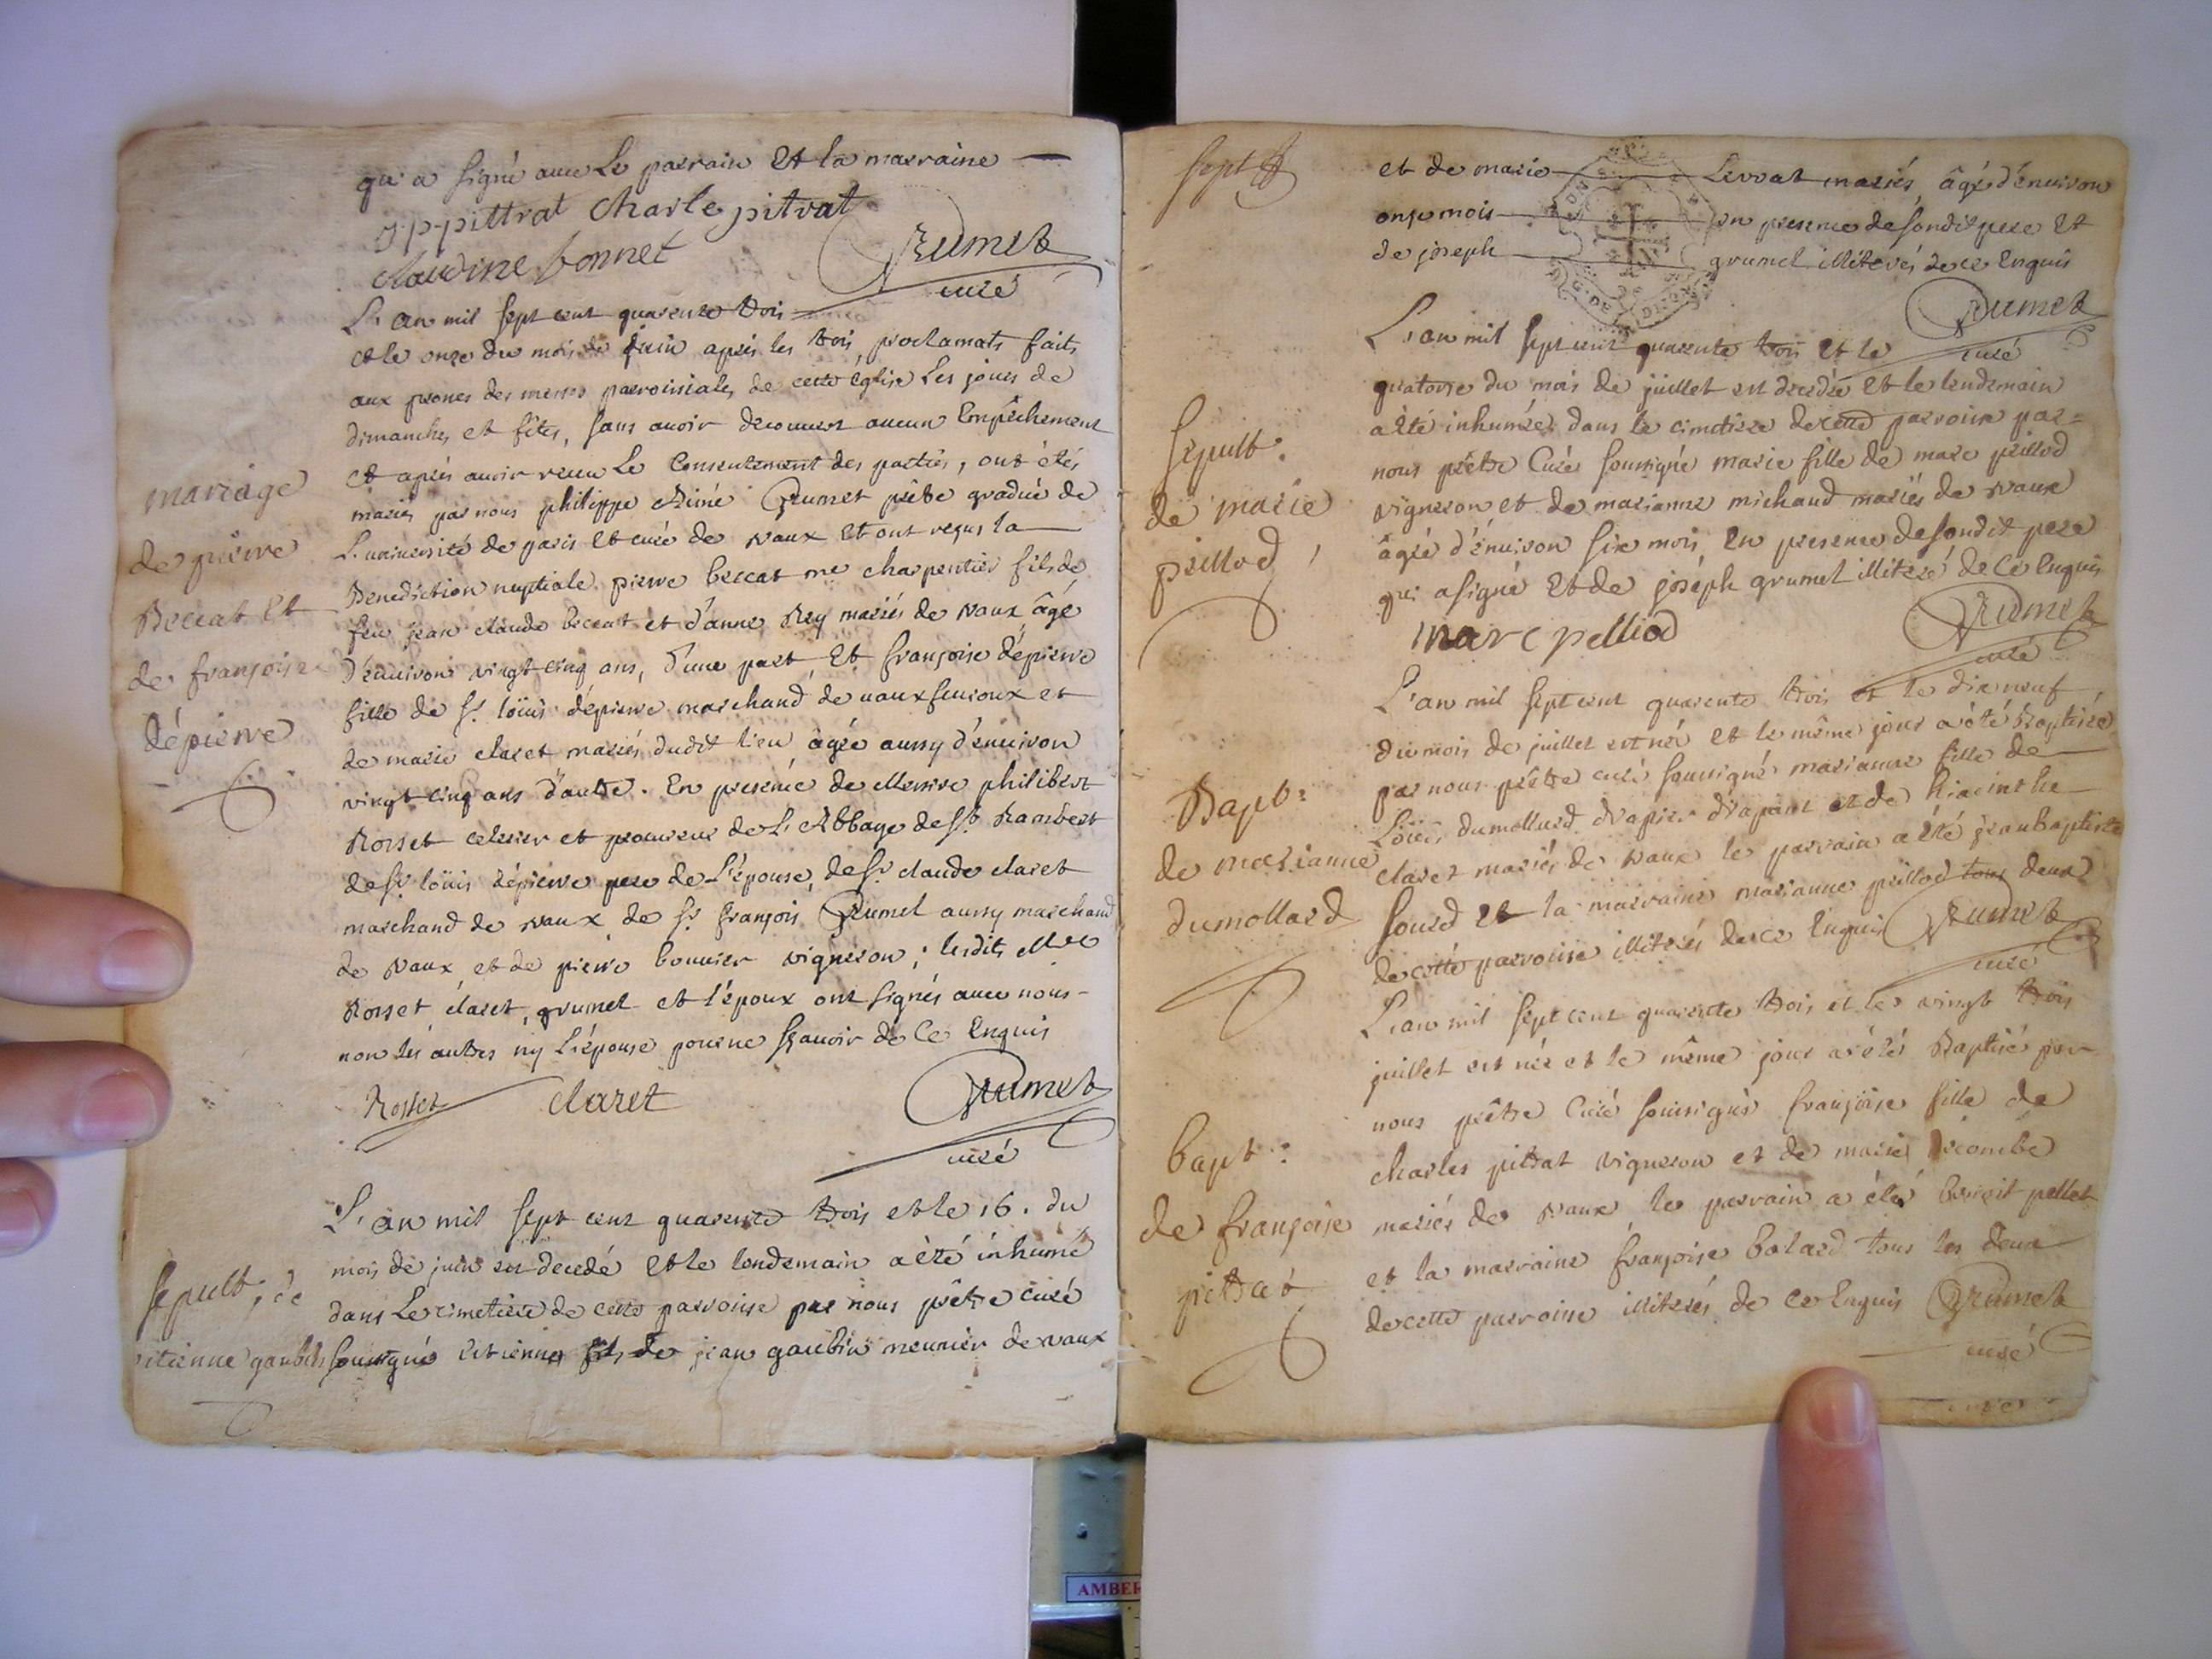 qui a signé avec Le parrain Et la marraine
J-p-pittrat charle pitrat
claudine bonnet
Grumet
curé
L'an mil sept cent quarente trois
et le onze du mois de juin après les trois proclamats faits
aux prones des messes parroissiales de cette Eglise Les jours de
dimanches et fêtes, sans avoir decouvert aucun Empêchement
et après avoir receu Le Consentement des parties, ont étés
mariage
mariés par nous philippe Aimé Grumet prêtre gradué de
L'université de paris Et curé de vaux Et ont reçus la
de pierre
Benediction nuptiale pierre beccat me charpentier fils de
Beccat Et
feu jean claude beccat et d'anne Rey mariés de vaux âgé
de françoise
d'environ vingt cinq ans, d'une part Et françoise dépierre
fille de sr. loüis dépierre marchand de vauxfevroux et
dépierre
de marie claret mariés dudit lieu âgée aussy d'environ
vingt cinq ans d'autre. En presence de Messire philibert
Rosset celerier et procureur de L'Abbaye de st. Rambert
de sr. loüis dépierre pere de L'épouse, de sr. claude claret
marchand de vaux de sr. françois Grumel aussy marchand
de vaux et de pierre bonnier vigneron; lesdits Mre
Rosset claret, grumel et l'époux ont signés avec nous-
non les autres ny L'épouse pour ne sçavoir de Ce Enquis
Rosset claret Grumet
curé
L'an mil sept cent quarente trois et le 16. du
mois de juin est decedé Et le lendemain a été inhumé
sepult, de
dans Le cimetiere de cette parroisse par nous prêtre curé
etienne gaubin soussigné Estienne fils de jean gaubin meunier de vaux
sept
et de marie Levrat mariés âgé d'environ
onze mois en presence de sondit pere Et
de joseph grumel illiterés de ce Enquis
Grumet
curé
L'an mil sept cent quarente trois Et le
quatorze du mois de juillet est decedée Et le lendemain
a été inhumée dans le cimetiere de cette parroisse par=
sepult.
nous prêtre Curé soussigné marie fille de marc peillod
de marie
vigneron et de marianne michaud mariés de vaux
peillod
âgée d'environ six mois, En presence de sondit pere
qui a signé Et de joséph grumel illiteré de Ce Enquis
marc pelliod
Grumet
curé
L'an mil sept cent quarente trois et le dix neuf
du mois de juillet est née et le même jour a été Baptisée
par nous prêtre curé soussigné marianne fille de
Bapt:
Loüis dumollard drapier drapant et de hiacinthe
de marianne
claret mariés de vaux le parrain a été jean baptiste
dumollard
sourd Et la marraine marianne peillod tous deux
de cette parroisse illiterés de ce Enquis Grumet
curé
L'an mil sept cent quarente trois et le vingt trois
juillet est née et le même jour a été Baptisée par
nous prêtre Curé soussigné françoise fille de
bapt:
charles pittrat vigneron et de marie
de françoise
mariés de vaux le parrain a été benoit pellet
pittrat
et la marraine françoise balard tous les deux
de cette parroisse illiterés de ce Enquis Grumet
curé
AMBER